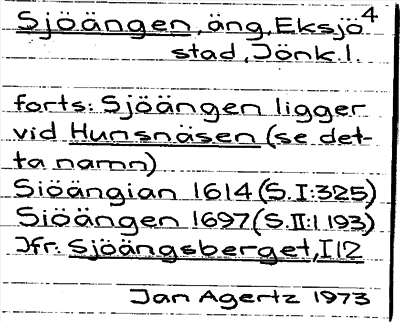 Sjöängen, äng, Eksjö 4
stad, Jönk. l.
forts: Sjöängen ligger
vid Hunsnäsen (se det-
ta namn)
Siöängian 1614 (S. I:325)
Siöängen 1697 (S. II:1 193)
Jfr: Sjöängsberget, I12
Jan Agertz 1973